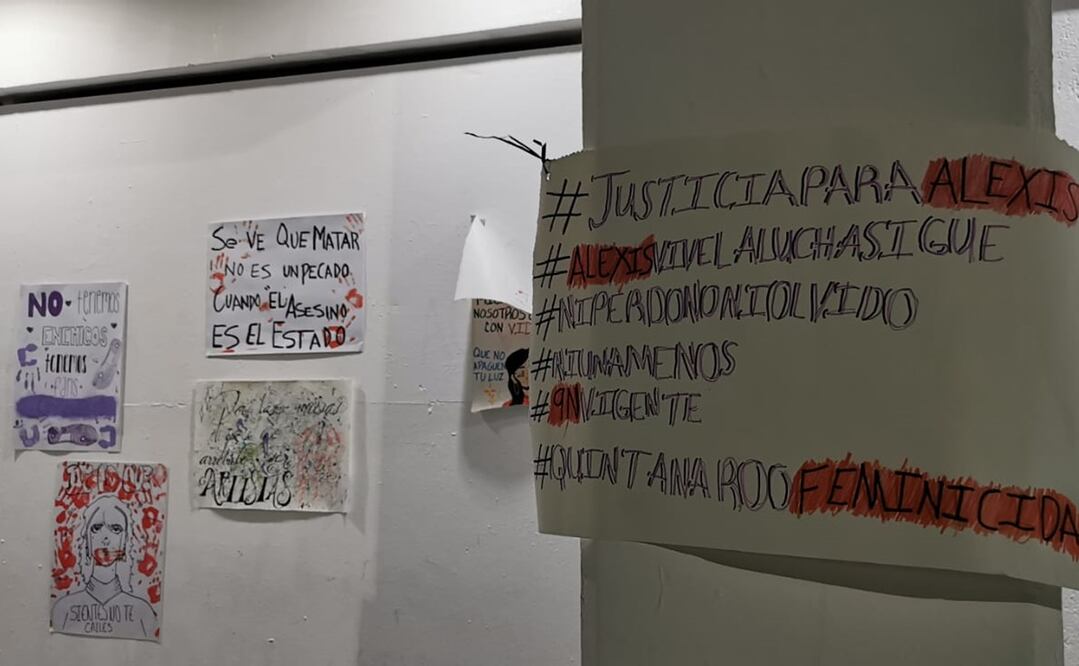 NO tenemos
ENEMIGOS
tenemos
FANS
SIENTES NO TE
CALLES
Se VE QUE MATAR
NO ES UN PECADO
CUANDO EL ASESINO
ES EL ESTADO
ARTISTAS
NOSOTROS
CON
QUE NO
APAGUEN
TU LUZ
#JUSTICIAPARAALEXIS
#ALEXISVIVELALUCHASIGUE
#NIPERDONONIOLVIDO
#NIUNAMENOS
#9NVIGENTE
#QUINTANAROOFEMINICIDA